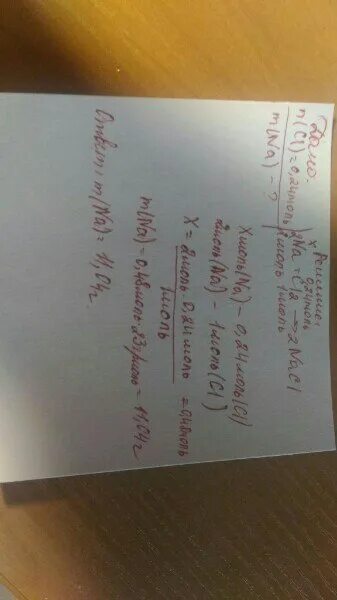 Дано: Решение:
n(Cl)=0,24моль x 0,24моль
2Na + Cl2 → 2NaCl
m(Na) - ? 2моль 1моль
X моль(Na) - 0,24 моль(Cl)
2моль(Na) - 1моль(Cl)
X = 2моль · 0,24 моль / 1моль = 0,48моль
m(Na) = 0,48моль · 23г/моль = 11,04г
Ответ: m(Na) = 11,04г.